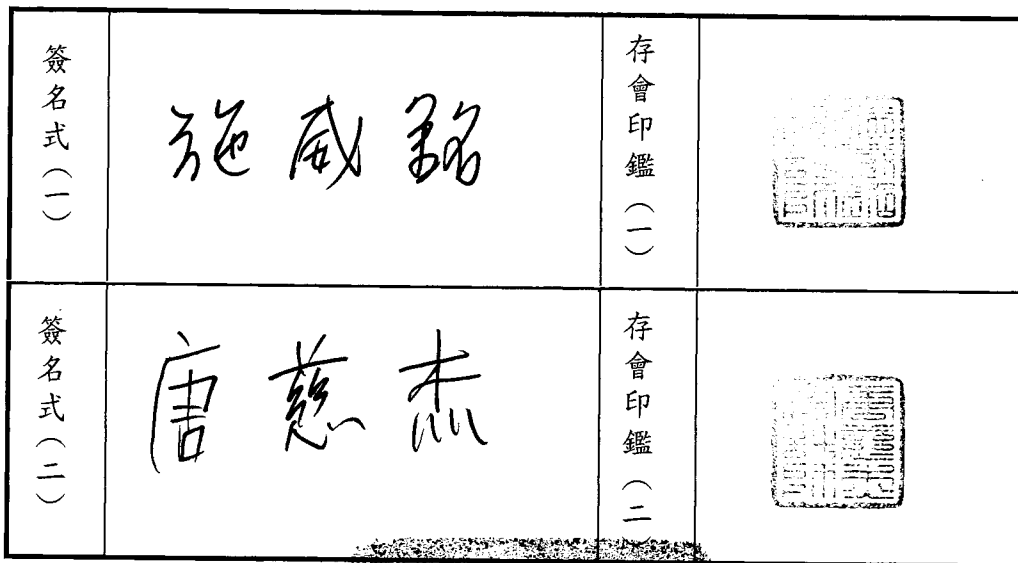 簽名式(一)
施威銘
存會印鑑(一)
簽名式(二)
唐慈杰
存會印鑑(二)